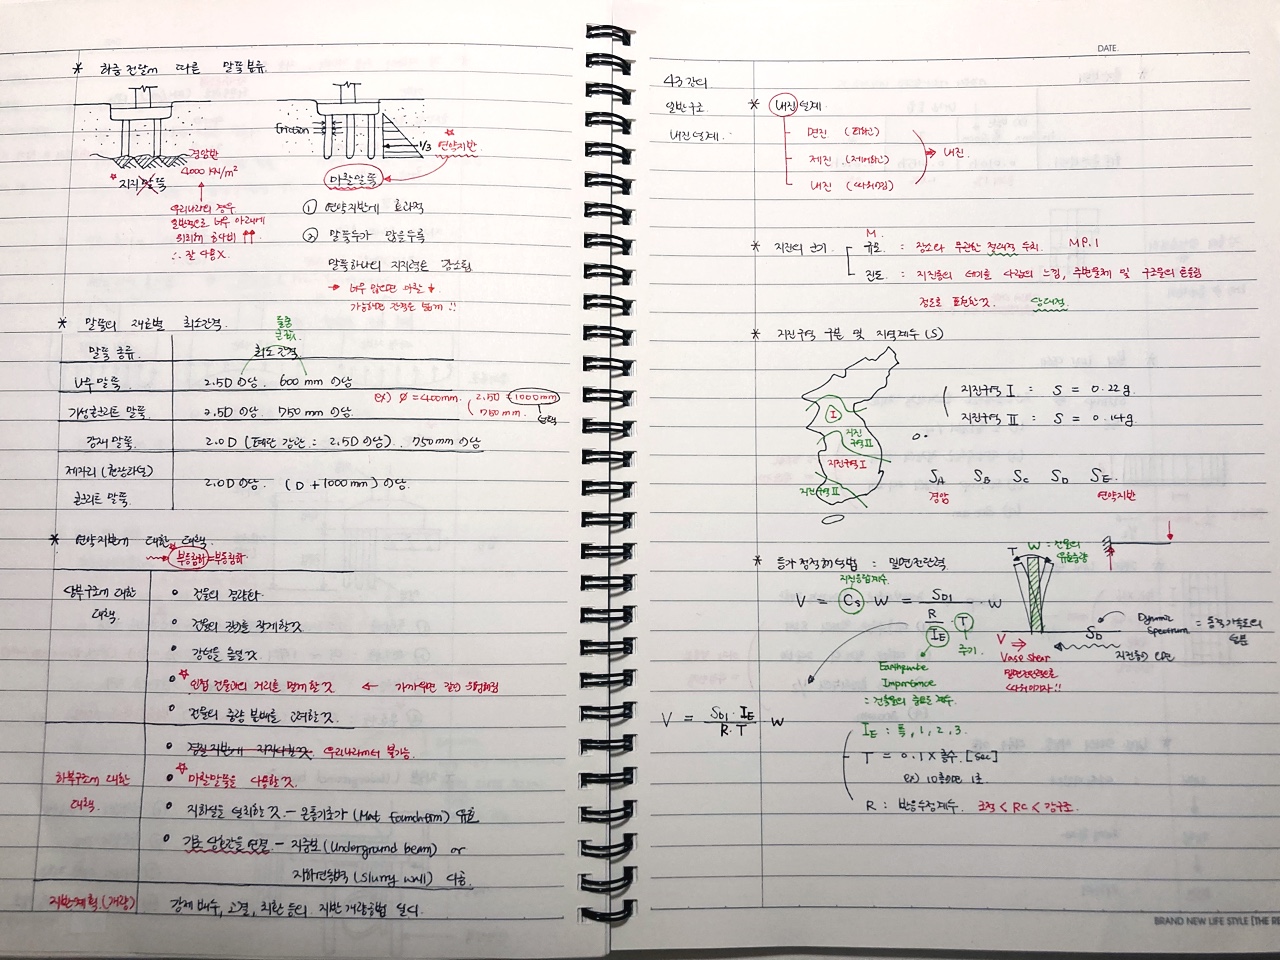 * 하중 전달에 따른 말뚝분류.
friction
1/3
연약지반
경암반
4000 KN/m²
지지말뚝
마찰말뚝
우리나라의 경우
일반적으로 너무 아래에
위치해 공사비 ↑↑
∴ 잘 사용 X.
① 연약지반에 효과적
② 말뚝수가 많을수록
말뚝하나의 지지력은 감소됨
→ 너무 많으면 마찰 ↓.
가능하면 간격은 넓게 !!
* 말뚝의 재료별 최소간격.
말뚝 종류. 최소간격
나무 말뚝. 2.5D 이상. 600 mm 이상
ex) ø = 400mm. 2.5D = 1000mm
750mm.
선택
기성콘크리트 말뚝 2.5D 이상. 750 mm 이상.
강재 말뚝. 2.0D (폐단 강관 : 2.5D 이상). 750mm 이상
제자리 (현장타설)
콘크리트 말뚝 2.0D 이상. (D + 1000mm) 이상.
* 연약지반에 대한 대책.
부동침하=부등침하
상부구조에 대한
대책.
• 건물의 경량화.
• 건물의 길이를 작게할것
• 강성을 높일 것.
• 인접 건물과의 거리를 멀게 할 것 ← 가까우면 같이 침하됨
• 건물의 중량 분배를 고려할 것.
• 경질지반에 지지시킬것. 우리나라에서 불가능.
하부구조에 대한
대책.
• 마찰말뚝을 사용할 것
• 지하실을 설치할 것 - 온통기초가 (Mat foundation) 유효
• 기초 상호간을 연결 - 지중보 (Underground beam) or
지하연속벽 (Slurry wall) 사용.
지반계획.(개량) 강제 배수, 고결, 치환 등의 지반 개량공법 실시.
DATE.
43강의
일반구조
내진설계.
* 내진설계
면진 (피하고)
제진 (제어하고)
내진 (싸워이김)
⇒ 내진
M.
* 지진의 크기
규모 : 장소와 무관한 절대적 수치. MP.1
진도 : 지진동의 세기를 사람의 느낌, 주변물체 및 구조물의 흔들림
정도로 표현한 것. 상대적.
* 지진구역 구분 및 지역계수 (S)
I
지진
구역 II
지진구역 I
지진구역 II
지진구역 I : S = 0.22g
지진구역 II : S = 0.14g.
SA SB SC SD SE.
경암 연약지반
* 등가 정적해석법 : 밑면전단력
지진응답계수.
V = Cs W = SD1 / (R / IE · T) · W
주기.
Earthquake
Importance
= 건축물의 중요도 계수.
T W = 건물의
유효중량
V ⇒
Vase shear
밑면전단력으로
싸워이기자 !!
SD
Dynamic
Spectrum
지진동의 방향
V = SD1 · IE / R · T W
IE : 특, 1, 2, 3.
T = 0.1 × 층수. [sec]
ex) 10층이면 1초.
R : 반응수정계수. 조적 < RC < 강구조.
BRAND NEW LIFE STYLE [THE RE